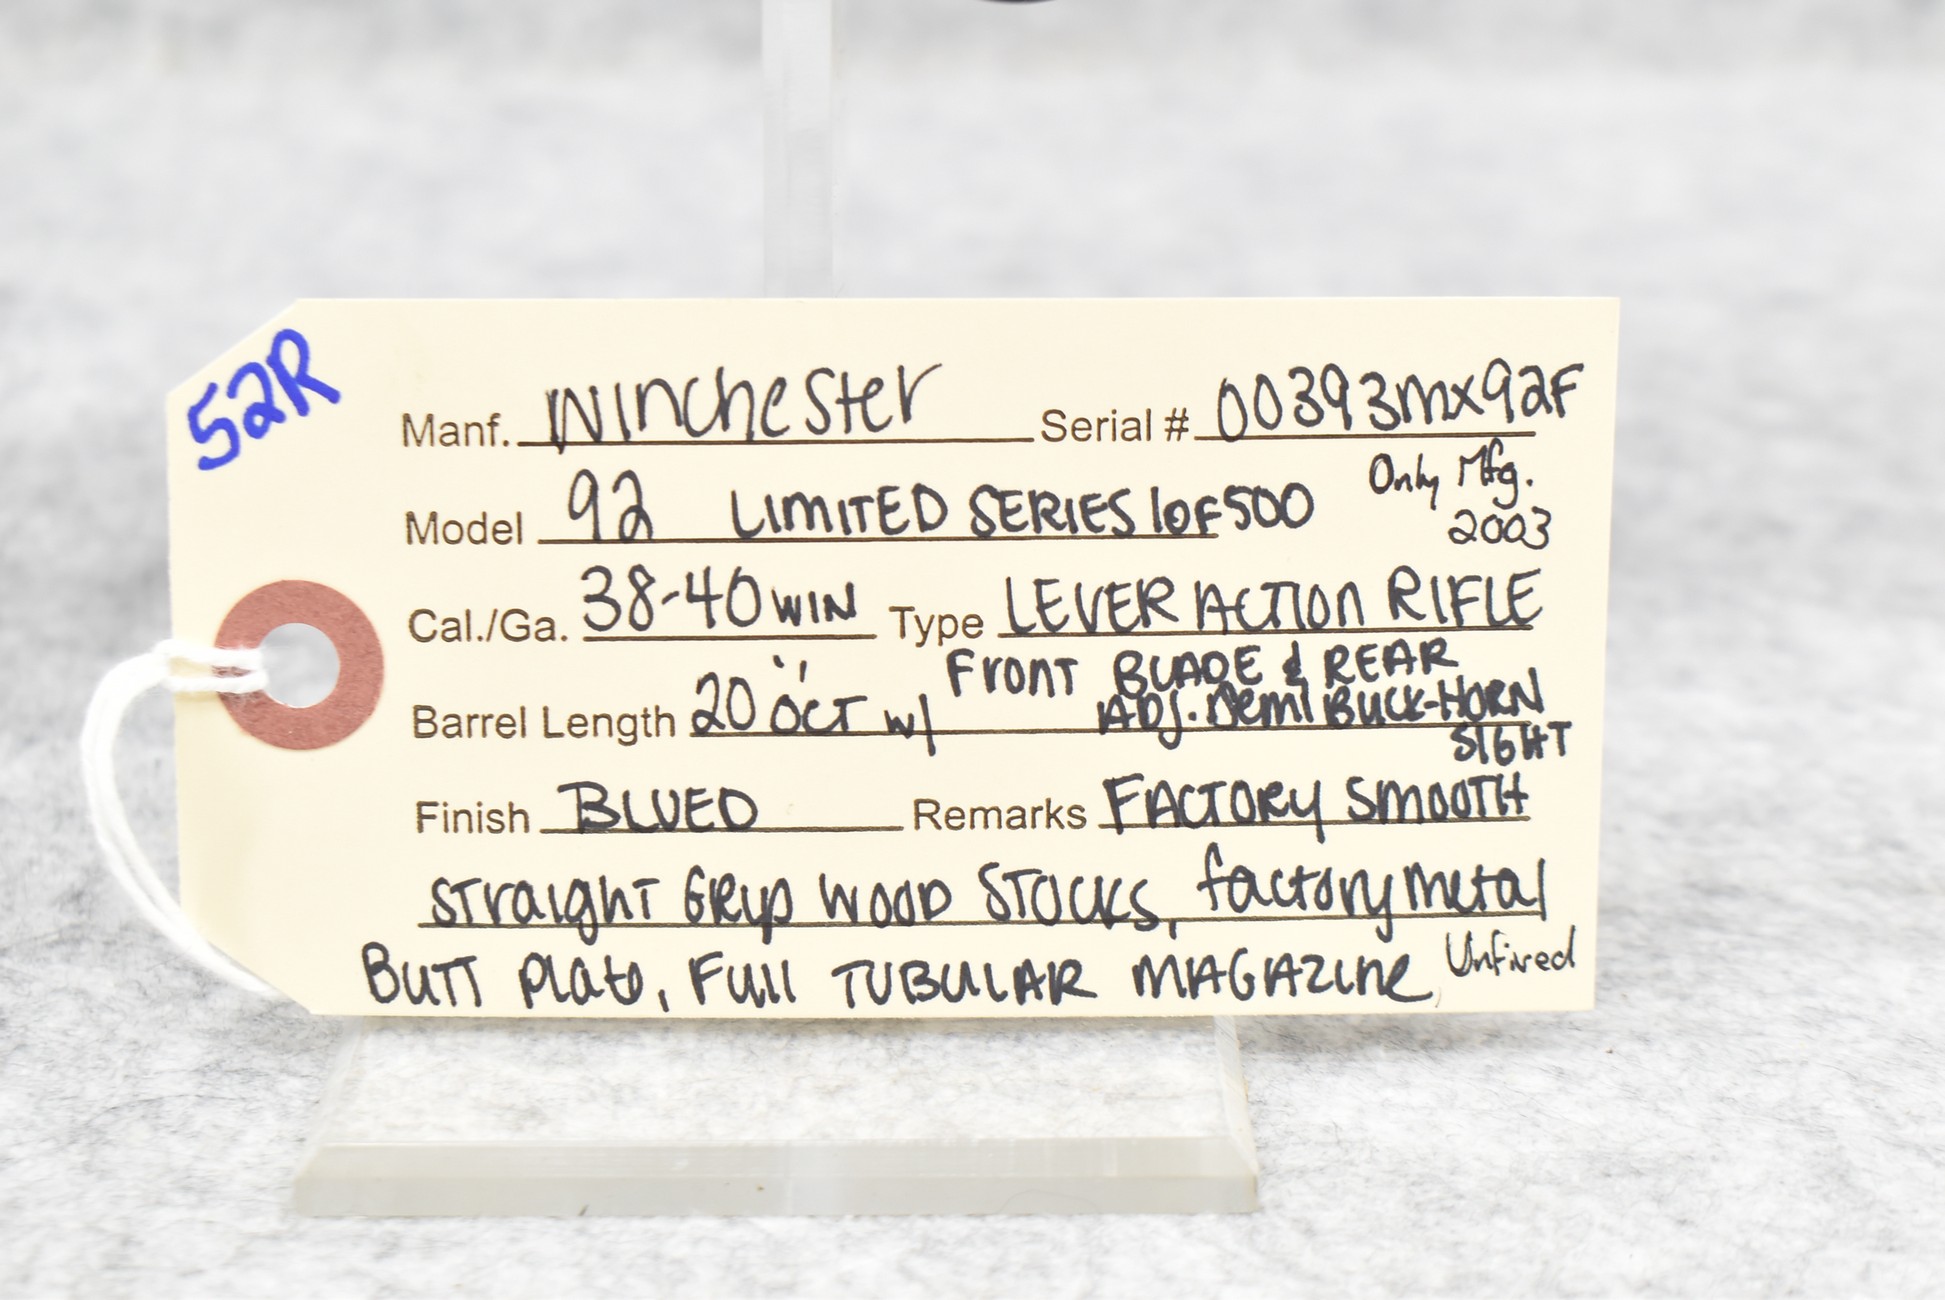 52R
Manf. Winchester Serial # 00393MX92F
Model 92 LIMITED SERIES 1 OF 500 Only Mfg.
2003
Cal./Ga. 38-40 WIN Type LEVER ACTION RIFLE
Barrel Length 20" OCT w/ Front BLADE & REAR
ADJ. Demi BUCK-HORN
SIGHT
Finish BLUED Remarks FACTORY SMOOTH
straight Grip WOOD STOCKS, factory metal
BUTT Plate, Full TUBULAR MAGAZINE, Unfired